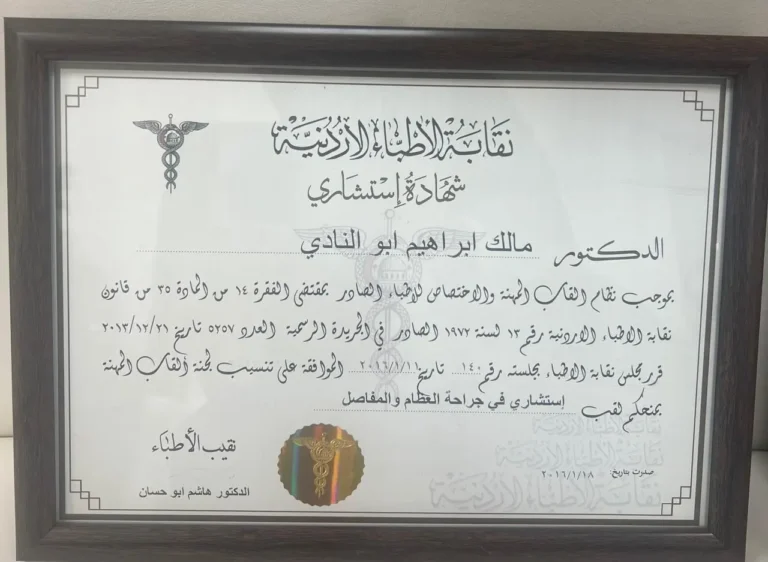 نقابة الأطباء الأردنية
شهادة إستشاري
الدكتور مالك ابراهيم ابو النادي
بموجب نظام القاب المهنة والاختصاص للأطباء الصادر بمقتضى الفقرة ١٤ من المادة ٣٥ من قانون
نقابة الاطباء الاردنية رقم ١٣ لسنة ١٩٧٢ الصادر في الجريدة الرسمية العدد ٥٢٥٧ تاريخ ٢٠١٣/١٢/٣١
قرر مجلس نقابة الاطباء بجلسته رقم ١٤٠ تاريخ ٢٠١٦/١/١١ الموافقة على تنسيب لجنة ألقاب المهنة
بمنحكم لقب إستشاري في جراحة العظام والمفاصل
نقابة الأطباء الأردنية
نقابة الأطباء الأردنية
نقابة الأطباء الأردنية
صدرت بتاريخ: ٢٠١٦/١/١٨
نقيب الأطباء
الدكتور هاشم ابو حسان